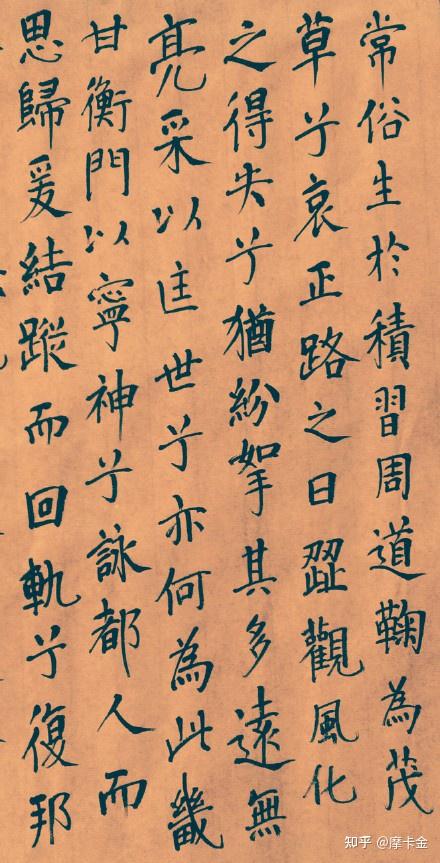 常俗生於積習周道鞠為茂
草兮哀正路之日澀觀風化
之得失兮猶紛挐其多遠無
亮采以匡世兮亦何為此畿
甘衡門以寧神兮詠都人而
思歸爰結蹤而回軌兮復邦
知乎 @摩卡金